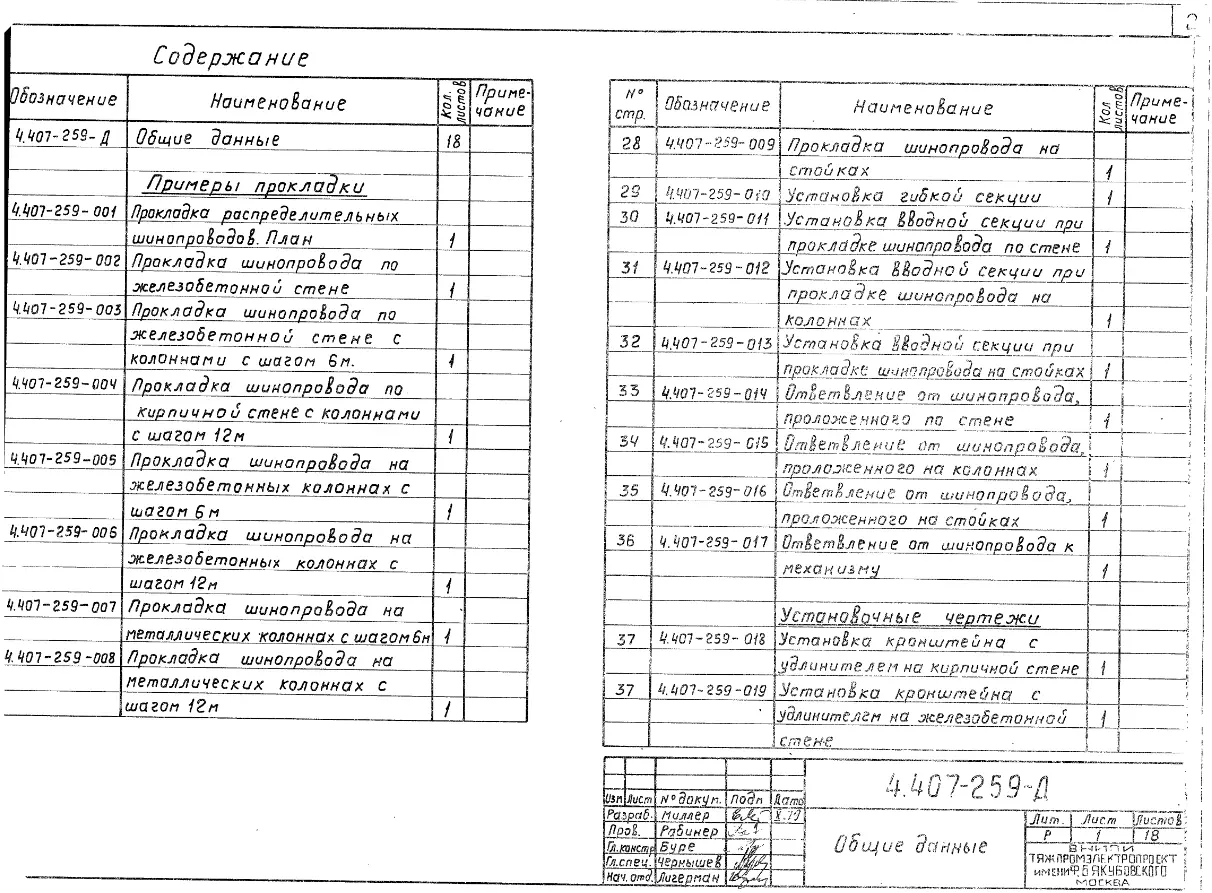 2
Содержание
Обозначение Наименование Кол. листов Приме-
чание
4.407-259-Д Общие данные 18
Примеры прокладки
4.407-259-001 Прокладка распределительных
шинопроводов. План 1
4.407-259-002 Прокладка шинопровода по
железобетонной стене 1
4.407-259-003 Прокладка шинопровода по
железобетонной стене с
колоннами с шагом 6м. 1
4.407-259-004 Прокладка шинопровода по
кирпичной стене с колоннами
с шагом 12м 1
4.407-259-005 Прокладка шинопровода на
железобетонных колоннах с
шагом 6м 1
4.407-259-006 Прокладка шинопровода на
железобетонных колоннах с
шагом 12м 1
4.407-259-007 Прокладка шинопровода на
металлических колоннах с шагом 6м 1
4.407-259-008 Прокладка шинопровода на
металлических колоннах с
шагом 12м 1
N°
стр. Обозначение Наименование Кол листов Приме-
чание
28 4.407-259-009 Прокладка шинопровода на
стойках 1
29 4.407-259-010 Установка гибкой секции 1
30 4.407-259-011 Установка вводной секции при
прокладке шинопровода по стене 1
31 4.407-259-012 Установка вводной секции при
прокладке шинопровода на
колоннах 1
32 4.407-259-013 Установка вводной секции при
прокладке шинопровода на стойках 1
33 4.407-259-014 Ответвление от шинопровода,
проложенного по стене 1
34 4.407-259-015 Ответвление от шинопровода,
проложенного на колоннах 1
35 4.407-259-016 Ответвление от шинопровода,
проложенного на стойках 1
36 4.407-259-017 Ответвление от шинопровода к
механизму 1
Установочные чертежи
37 4.407-259-018 Установка кронштейна с
удлинителем на кирпичной стене 1
37 4.407-259-019 Установка кронштейна с
удлинителем на железобетонной 1
стене
4.407-259-Д
Изм Лист N° докум. Подп Дата
Разраб. Миллер
Пров. Рабинер
Гл.констр Буре
Гл.спец. Чернышев
Нач. отд. Лигерман
Общие данные
Лит. Лист Листов
Р 1 18
ВНИПИ
ТЯЖПРОМЭЛЕКТРОПРОЕКТ
ИМЕНИ Ф.Б.ЯКУБОВСКОГО
МОСКВА